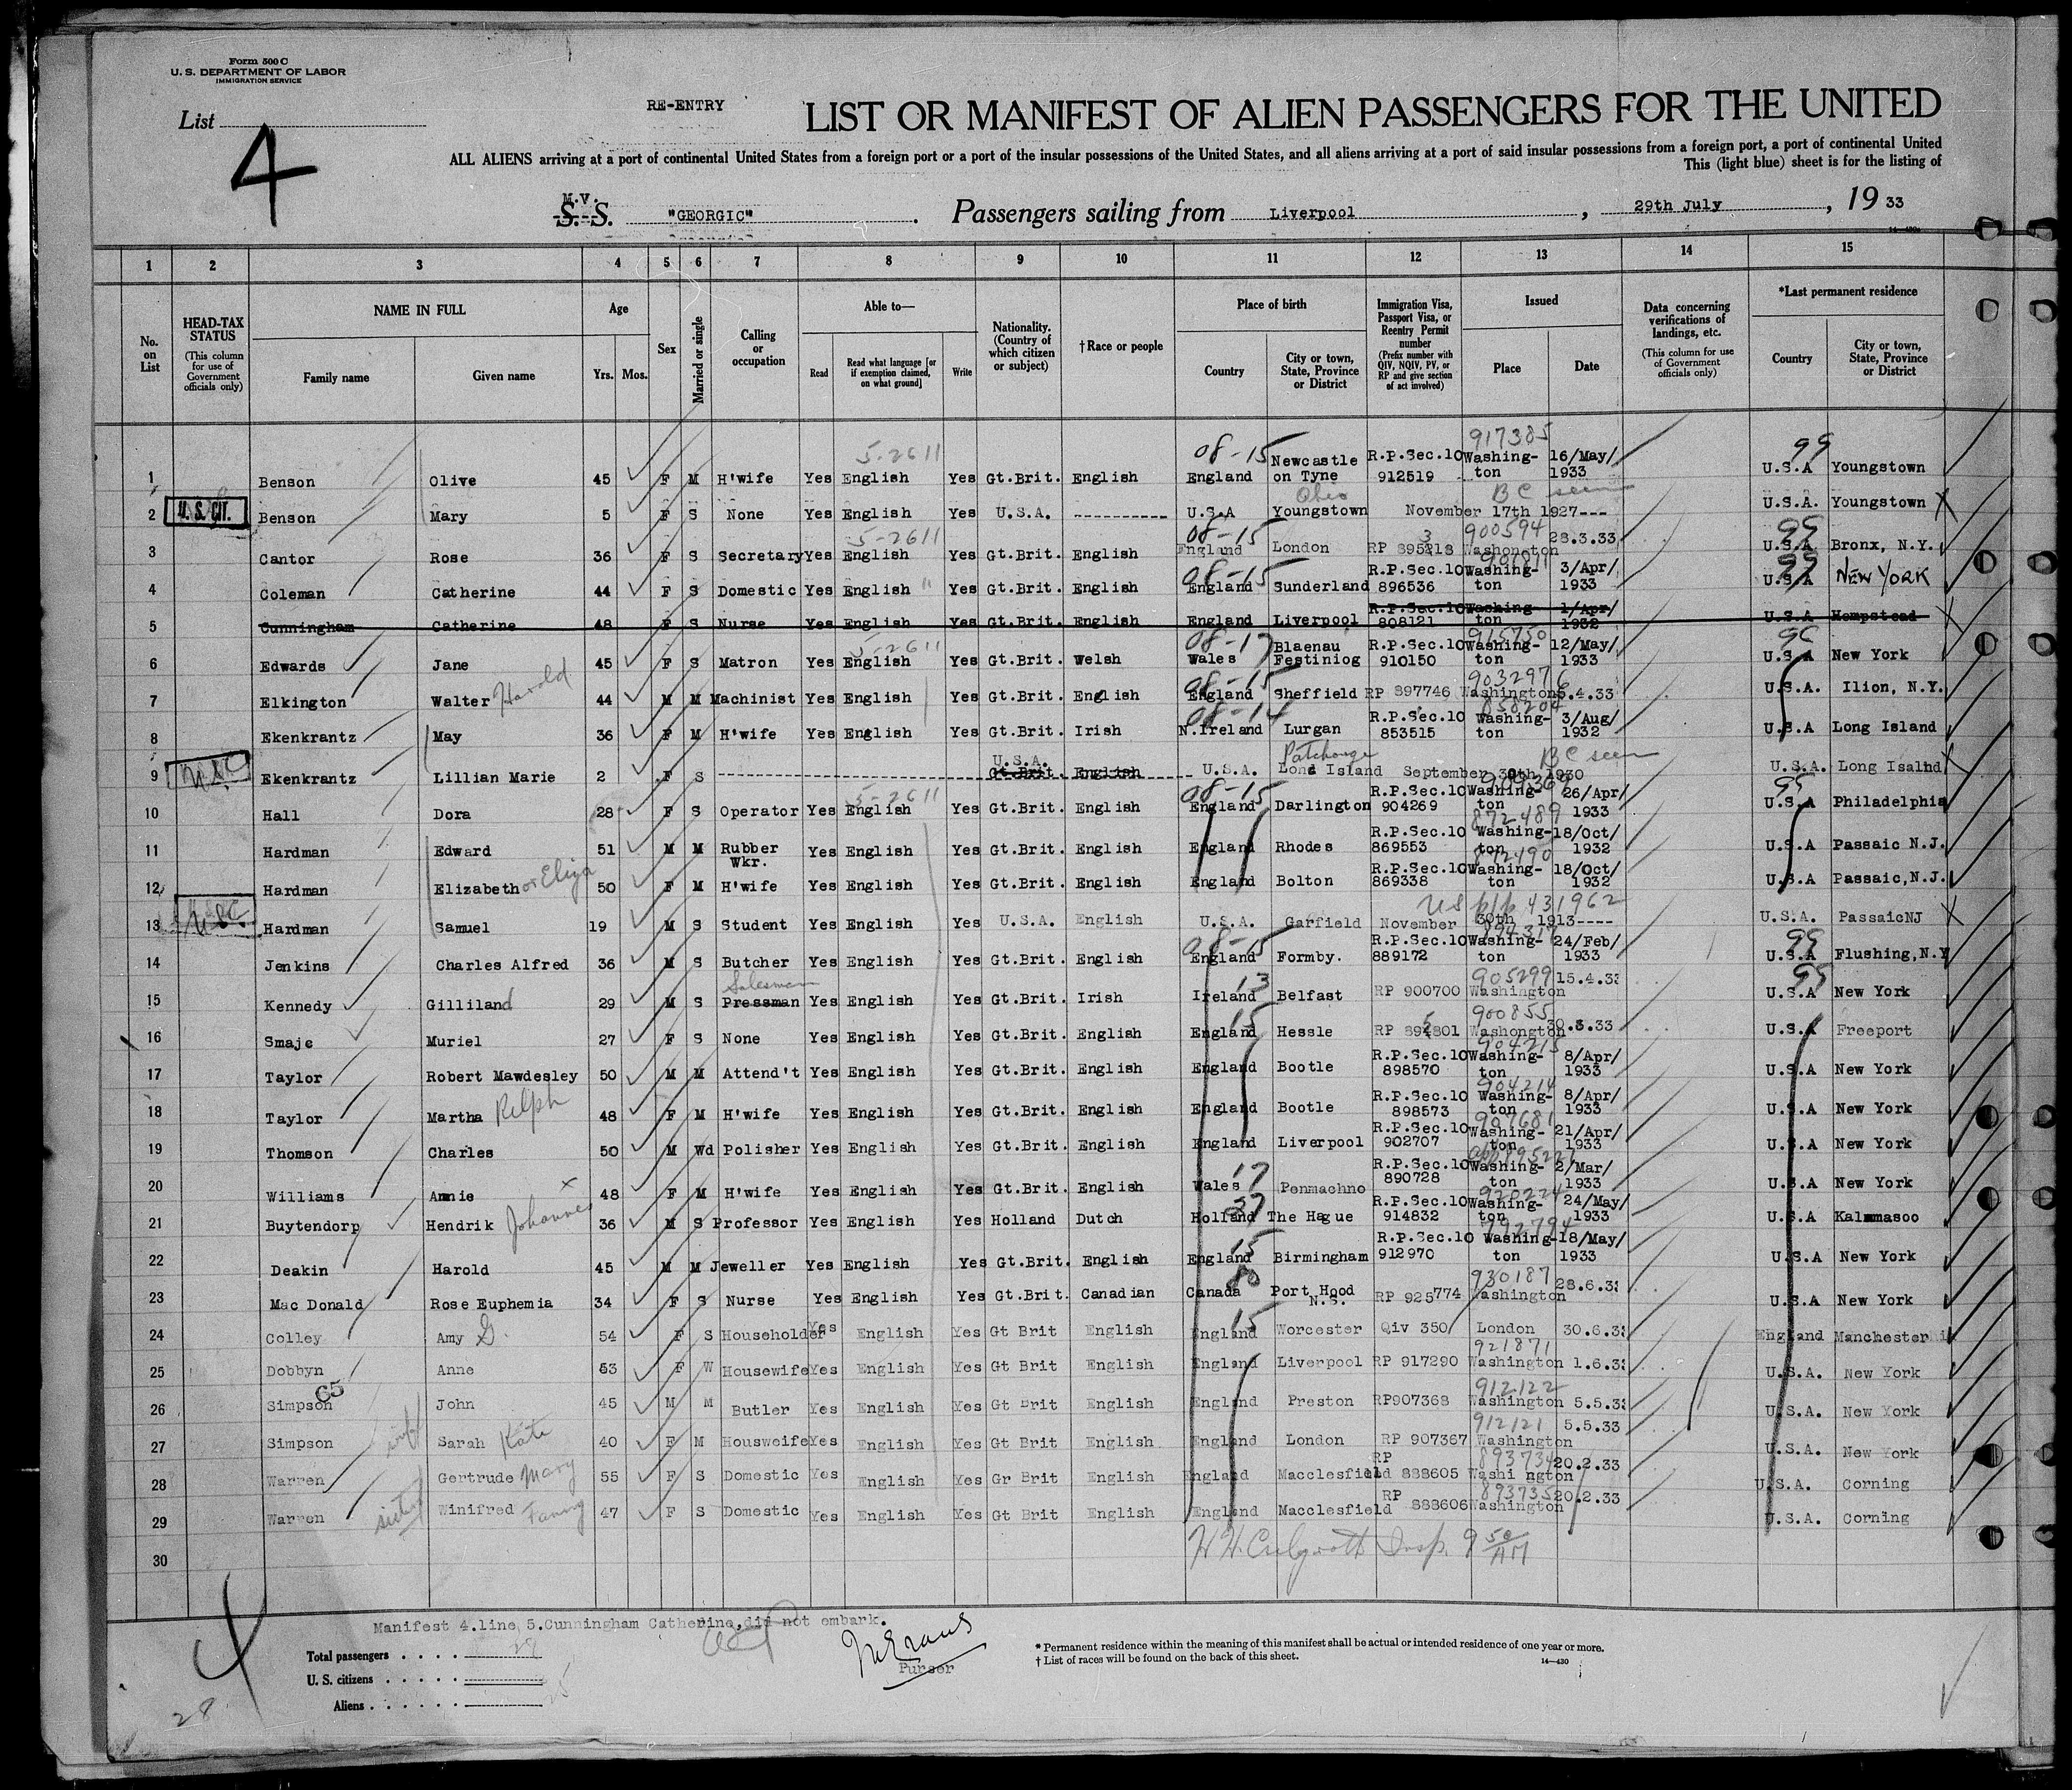 Form 500 C
U. S. DEPARTMENT OF LABOR
IMMIGRATION SERVICE
List
4
RE-ENTRY
LIST OR MANIFEST OF ALIEN PASSENGERS FOR THE UNITED
ALL ALIENS arriving at a port of continental United States from a foreign port or a port of the insular possessions of the United States, and all aliens arriving at a port of said insular possessions from a foreign port, a port of continental United
This (light blue) sheet is for the listing of
M.V.
S. S. "GEORGIC". Passengers sailing from Liverpool, 29th July, 19 33
14-430
1 2 3 4 5 6 7 8 9 10 11 12 13 14 15
No. on List
HEAD-TAX STATUS (This column for use of Government officials only)
NAME IN FULL Family name Given name
Age Yrs. Mos.
Sex
Married or single
Calling or occupation
Able to— Read Read what language [or if exemption claimed, on what ground] Write
Nationality. (Country of which citizen or subject)
†Race or people
Place of birth Country City or town, State, Province or District
Immigration Visa, Passport Visa, or Reentry Permit number (Prefix number with QIV, NQIV, PV, or RP and give section of act involved)
Issued Place Date
Data concerning verifications of landings, etc. (This column for use of Government officials only)
*Last permanent residence Country City or town, State, Province or District
5-2611 08-15 917385 99
1 Benson Olive 45 F M H'wife Yes English Yes Gt.Brit. English England Newcastle on Tyne R.P.Sec.10 912519 Washing-ton 16/May/1933 U.S.A Youngstown
Ohio BC seen
2 U.S. CIT. Benson Mary 5 F S None Yes English Yes U.S.A. ---------- U.S.A Youngstown November 17th 1927--- U.S.A. Youngstown X
5-2611 08-15 3 900594 99
3 Cantor Rose 36 F S Secretary Yes English Yes Gt.Brit. English England London RP 895218 Washongton 28.3.33 U.S.A Bronx, N.Y.
08-15 99
4 Coleman Catherine 44 F S Domestic Yes English " Yes Gt.Brit. English England Sunderland R.P.Sec.10 896536 Washing-ton 3/Apr/1933 U.S.A NEW YORK
5 Cunningham Catherine 48 F S Nurse Yes English Yes Gt.Brit. English England Liverpool R.P.Sec.10 808121 Washing-ton 1/Apr/1932 U.S.A Hempstead X
5-2611 08-17 915750
6 Edwards Jane 45 F S Matron Yes English Yes Gt.Brit. Welsh Wales Blaenau Festiniog R.P.Sec.10 910150 Washing-ton 12/May/1933 U.S.A New York
08-15 9032976
7 Elkington Walter Harold 44 M M Machinist Yes English Yes Gt.Brit. English England Sheffield RP 897746 Washington 5.4.33 U.S.A. Ilion, N.Y.
08-14 858204
8 Ekenkrantz May 36 F M H'wife Yes English Yes Gt.Brit. Irish N.Ireland Lurgan R.P.Sec.10 853515 Washing-ton 3/Aug/1932 U.S.A Long Island
U.S.A. Patchouge BC seen
9 USC Ekenkrantz Lillian Marie 2 F S ---------- Gt.Brit. English U.S.A. Lond Island September 30th 1930 U.S.A. Long Isalnd X
5-2611 08-15 99
10 Hall Dora 28 F S Operator Yes English Yes Gt.Brit. English England Darlington R.P.Sec.10 904269 Washing-ton 26/Apr/1933 U.S.A Philadelphia
872489
11 Hardman Edward 51 M M Rubber Wkr. Yes English Yes Gt.Brit. English England Rhodes R.P.Sec.10 869553 Washing-ton 18/Oct/1932 U.S.A Passaic N.J.
872490
12 Hardman Elizabeth or Eliza 50 F M H'wife Yes English Yes Gt.Brit. English England Bolton R.P.Sec.10 869338 Washing-ton 18/Oct/1932 U.S.A Passaic, N.J.
US p/p 431962
13 USC Hardman Samuel 19 M S Student Yes English Yes U.S.A. English U.S.A. Garfield November 30th 1913---- U.S.A. PassaicNJ X
08-15 99
14 Jenkins Charles Alfred 36 M S Butcher Yes English Yes Gt.Brit. English England Formby. R.P.Sec.10 889172 Washing-ton 24/Feb/1933 U.S.A Flushing, N.Y
Salesman 13 905299 99
15 Kennedy Gilliland 29 M S Pressman Yes English Yes Gt.Brit. Irish Ireland Belfast RP 900700 Washington 15.4.33 U.S.A New York
15 900855
16 Smaje Muriel 27 F S None Yes English Yes Gt.Brit. English England Hessle RP 894801 Washongton 30.3.33 U.S.A Freeport
904215
17 Taylor Robert Mawdesley 50 M M Attend't Yes English Yes Gt.Brit. English England Bootle R.P.Sec.10 898570 Washing-ton 8/Apr/1933 U.S.A New York
904214
18 Taylor Martha Relph 48 F M H'wife Yes English Yes Gt.Brit. English England Bootle R.P.Sec.10 898573 Washing-ton 8/Apr/1933 U.S.A New York
907681
19 Thomson Charles 50 M Wd Polisher Yes English Yes Gt.Brit. English England Liverpool R.P.Sec.10 902707 Washing-ton 21/Apr/1933 U.S.A New York
17
20 Williams Annie x 48 F M H'wife Yes English Yes Gt.Brit. English Wales Penmachno R.P.Sec.10 890728 Washing-ton 2/Mar/1933 U.S.A New York
37 920224
21 Buytendorp Hendrik Johannes 36 M S Professor Yes English Yes Holland Dutch Holland The Hague R.P.Sec.10 914832 Washing-ton 24/May/1933 U.S.A Kalamasoo
15 992794
22 Deakin Harold 45 M M Jeweller Yes English Yes Gt.Brit. English England Birmingham R.P.Sec.10 912970 Washing-ton 18/May/1933 U.S.A New York
80 930187
23 Mac Donald Rose Euphemia 34 F S Nurse Yes English Yes Gt.Brit. Canadian Canada Port Hood N.S. RP 925774 Washington 28.6.33 U.S.A New York
15
24 Colley Amy G. 54 F S Householder Yes English Yes Gt Brit English England Worcester Qiv 350 London 30.6.33 England Manchester
921871
25 Dobbyn Anne 53 F W Housewife Yes English Yes Gt Brit English England Liverpool RP 917290 Washington 1.6.33 U.S.A. New York
65 912122
26 Simpson John 45 M M Butler Yes English Yes Gt Brit English England Preston RP907368 Washington 5.5.33 U.S.A. New York
912121
27 Simpson wife Sarah Kate 40 F M Housweife Yes English Yes Gt Brit English England London RP 907367 Washington 5.5.33 U.S.A. New York
893734
28 Warren Gertrude Mary 55 F S Domestic Yes English Yes Gr Brit English England Macclesfield RP 888605 Washi ngton 20.2.33 U.S.A. Corning
893735
29 Warren sister Winifred Fanny 47 F S Domestic Yes English Yes Gt Brit English England Macclesfield RP 888606 Washington 20.2.33 U.S.A. Corning
30 Insp. 9 50 AM
Manifest 4.line 5.Cunningham Catherine,did not embark.
Total passengers . . . . 28
U. S. citizens . . . . .
Aliens . . . . . . 25
Purser
* Permanent residence within the meaning of this manifest shall be actual or intended residence of one year or more.
† List of races will be found on the back of this sheet.
14-430
4
28